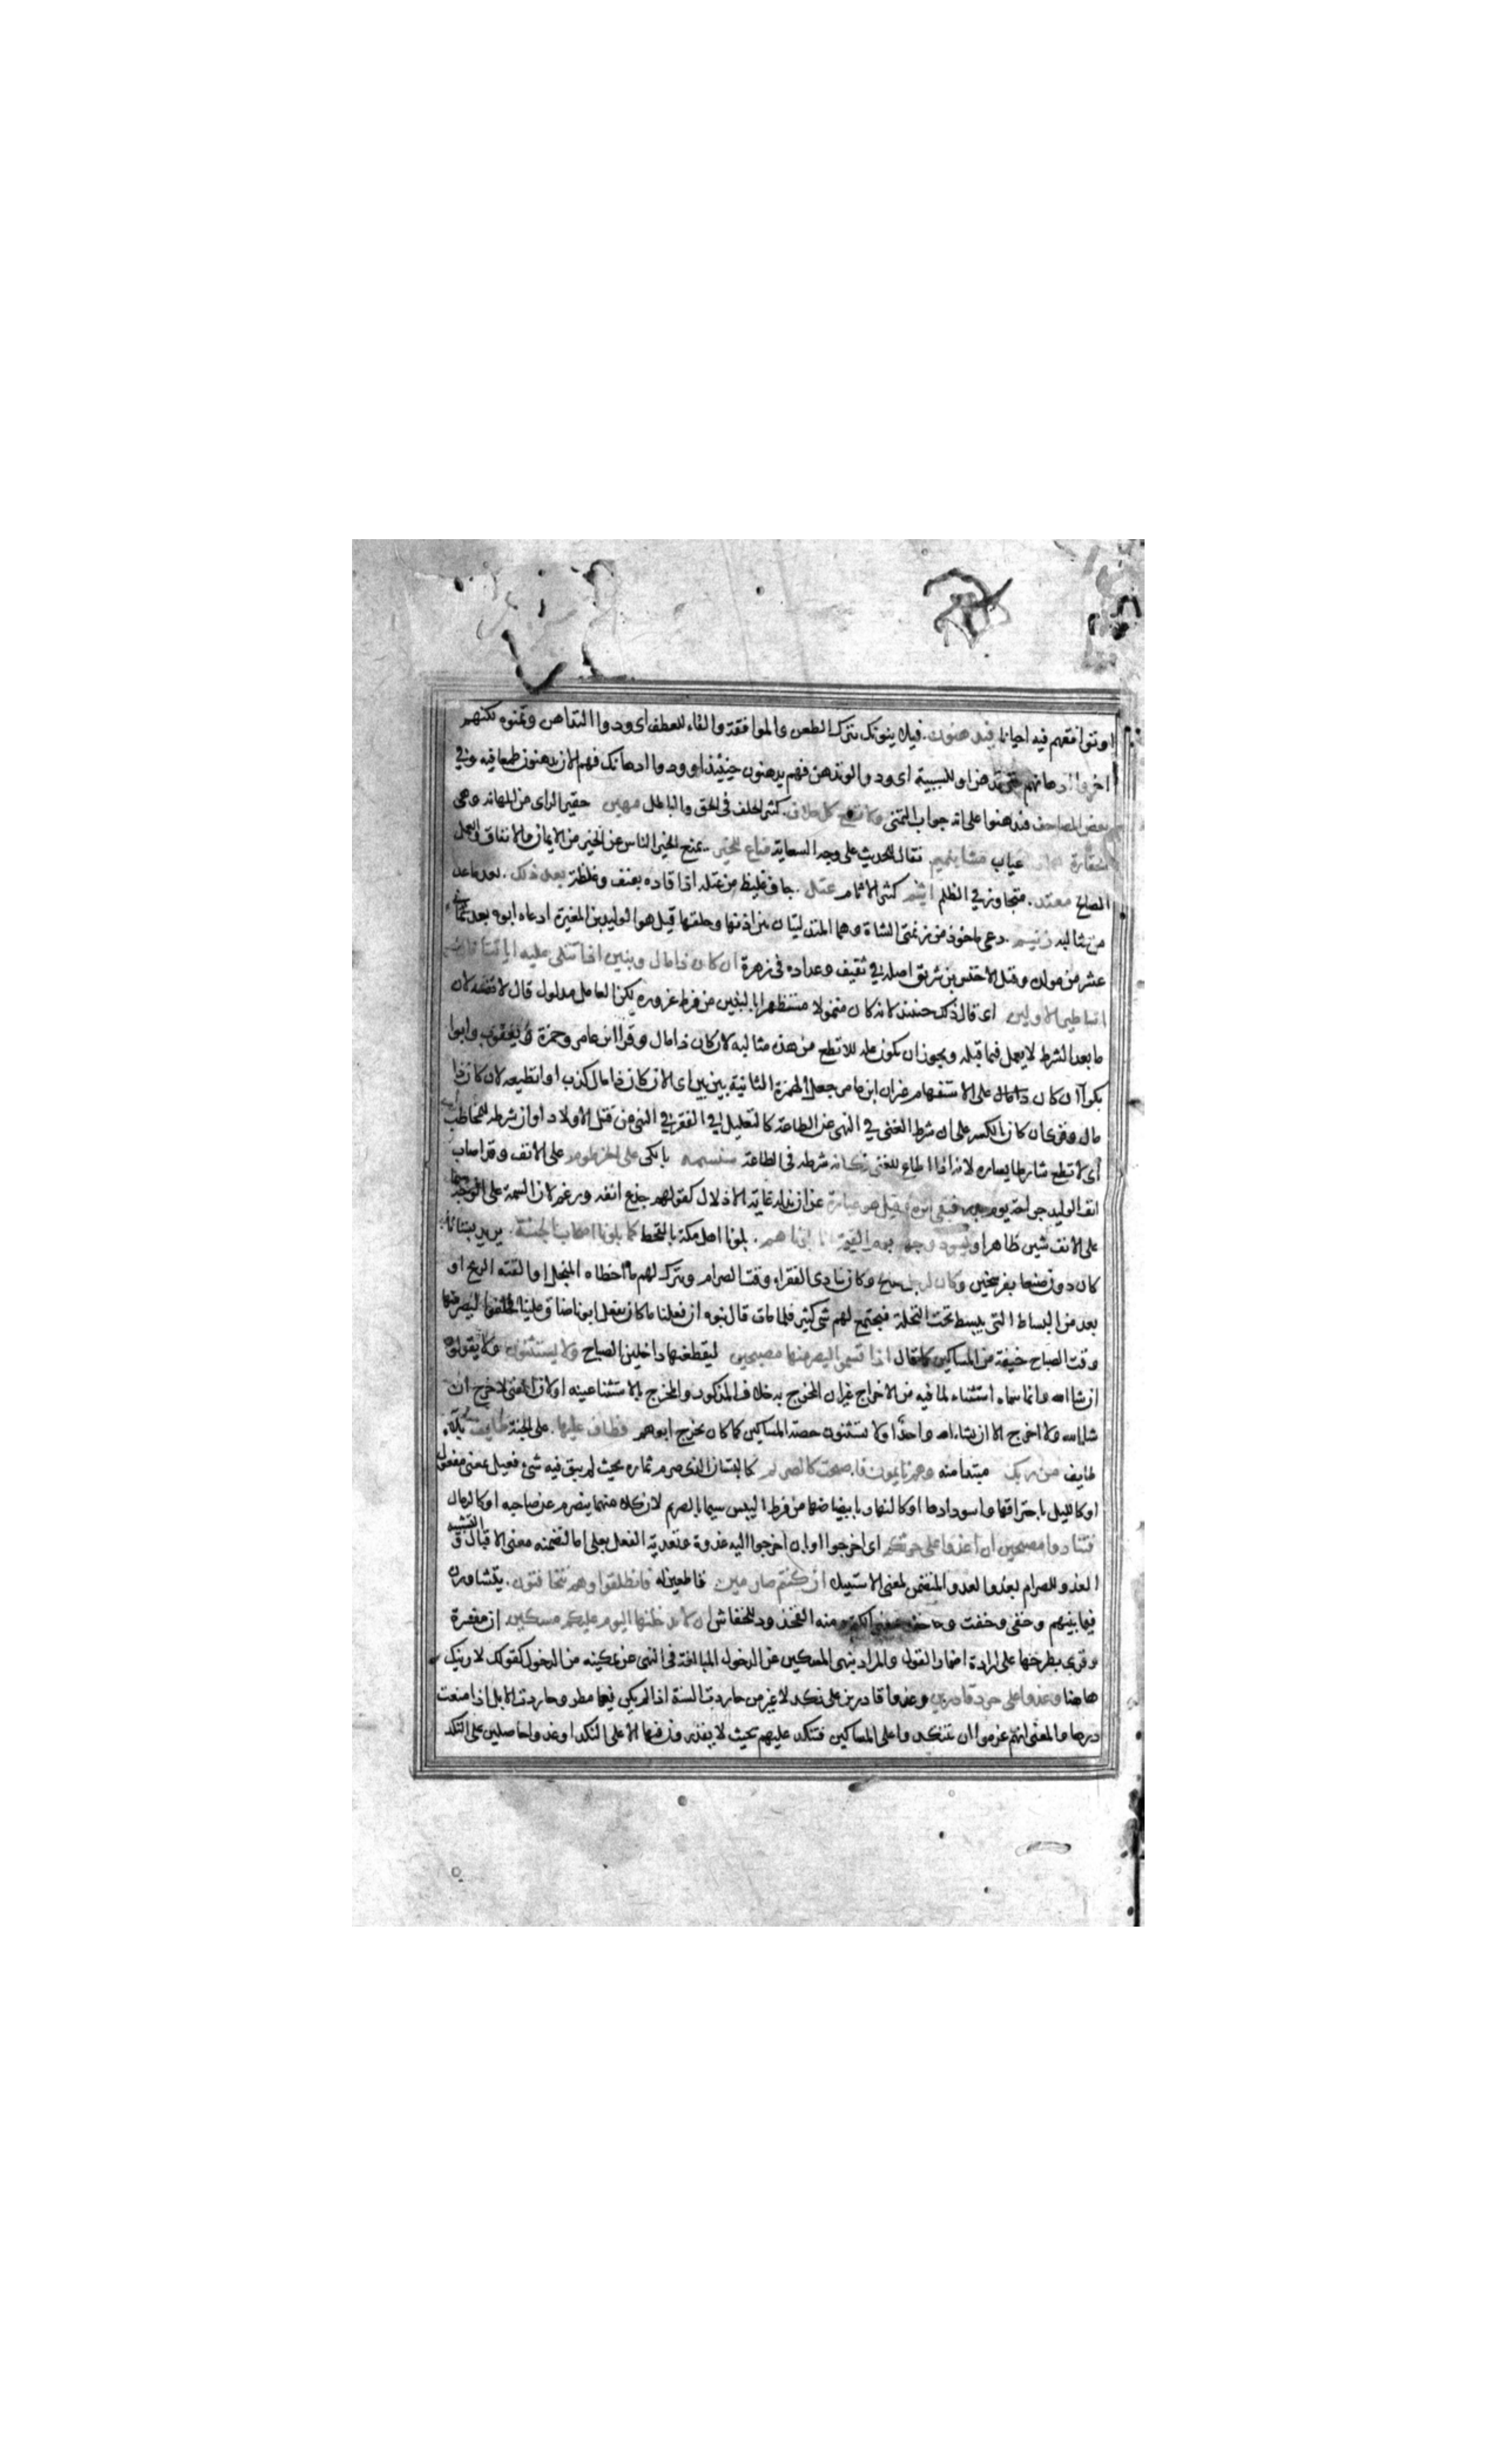 او توافقهم فيه احيانا فيدهنون. فيلاينونك بترك الطعن والموافقة والفاء للعطف اى ودوا التداهن وتمنوه لكنهم
اخروا ادهانهم حتى تدهن او للسببية اى ودوا لو تدهن فهم يدهنون حينئذ او ودوا ادهانك فهم الان يدهنون طمعا فيه وفي
بعض المصاحف فيدهنوا على انه جواب التمنى ولا تطع كل حلاف. كثير الحلف فى الحق والباطل مهين حقير الراى من المهانه وهى
الحقارة عياب مشا بنميم. نقال للحديث على وجه السعاية مناع للخير. يمنع الخير الناس عن الخير من الايمان والانفاق والعمل
الصالح معتد. متجاوز في الظلم اثيم كثير الاثام عتل. جاف غليظ من عتله اذا قاده بعنف وغلظة بعد ذلك. بعد ما عد
من مثالبه زنيم. دعى ماخوذ من زنمتى الشاة وهما المتدليتان من اذنها وحلقها قيل هو الوليد بن المغيرة ادعاه ابوه بعد ثمانى
عشر من مولده وقيل الاخنس بن شريق اصله في ثقيف وعداده فى زهرة ان كان ذا مال وبنين اذا تتلى عليه اياتنا قال
اساطير الاولين اى قال ذلك حينئذ لانه كان متمولا مستظهرا بالبنين من فرط غروره لكن العامل مدلول قال لا نفسه لان
ما بعد الشرط لا يعمل فيما قبله ويجوز ان يكون عله للا تطع من هذه مثالبه لان كان ذا مال وقرا ابن عامر وحمزة ويعقوب وابوا
بكر اان كان ذا مال على الاستفهام غير ان ابن عامر جعل الهمزة الثانية بين بين اى الان كان ذا مال كذب او اتطيعه لان كان ذا
مال وقرى ان كان بالكسر على ان شرط الغنى في النهى عن الطاعة كالتعليل في الفقر في النهى عن قتل الاولاد او ان شرطه للمخاطب
اى لا تطع شارطا يساره لانه اذا اطاع للغنى فكانه شرطه فى الطاعة سنسمه بالكى على الخرطوم على الانف وقد اصاب
انف الوليد جراحة يوم بدر فبقى اثره وقيل هو عبارة عن ان يذله غاية الاذلال كقولهم جذع انفه ورغم لان السمة على الوجه سيما
على الانف شين ظاهر او نسود وجهه يوم القيمة انا بلوناهم. بلونا اهل مكة بالقحط كما بلونا اصحاب الجنة. يريد بستانا
كان دون صنعا بفرسخين وكان لرجل صالح وكان ينادى الفقراء وقت الصرام ويترك لهم ما اخطاه المنجل او القته الريح او
بعد من البساط التى يبسط تحت النخلة فيجتمع لهم شى كثير فلما مات قال بنوه ان فعلنا ما كان يفعل ابونا ضاق علينا فحلفوا ليصرمنها
وقت الصباح خيفة من المساكين كما قال اذا قسموا ليصرمنها مصبحين ليقطعنها داخلين الصباح ولا يستثنون ولا يقولون
ان شا الله وانما سماه استثناء لما فيه من الاخراج غير ان المخرج به خلاف المذكور والمخرج بالاستثنا عينه او لان المعنى لاخرج ان
شا الله ولا اخرج الا ان يشاء الله واحد او لا يستثنون حصة المساكين كما كان يخرج ابوهم فطاف عليها. على الجنة طايف بلاء
طايف من ربك مبتدا منه وهم نايمون فاصبحت كالصريم كالبستان الذى صرم ثماره بحيث لم يبق فيه شئ فعيل بمعنى مفعول
او كالليل باحتراقها واسودادها او كالنهار بابيضاضها من فرط اليبس سميا بالصريم لان كلا منهما ينصرم عن صاحبه او كالرمال
فتنادوا مصبحين ان اغدوا على حرثكم اى اخرجوا او بان اخرجوا اليه غدوة وتعدية الفعل بعلى اما لتضمنه معنى الاقبال او لتشبيه
الغدو للصرام بغدو العدو المتضمن لمعنى الاستيلا ان كنتم صارمين قاطعين له فانطلقوا وهم يتخافتون. يتشاورن
فيما بينهم وخفى وخفت وخفد بمعنى الكتم ومنه الخفدود للخفاش ان لا يدخلنها اليوم عليكم مسكين ان مفسرة
وقرى بطرحها على ارادة اضمار القول والمراد بنهى المسكين عن الدخول المبالغة فى النهى عن تمكينه من الدخول كقولك لا ارينك
هاهنا وغدوا على حرد قادرين وغدوا قادرين على نكد لا غير من حاردت السنة اذا لم يكن فيها مطر وحاردت الابل اذا منعت
درها والمعنى انهم عزموا ان يتنكدوا على المساكين فتنكد عليهم بحيث لا يقدرون فيها الا على النكد او غدوا حاصلين على النكد